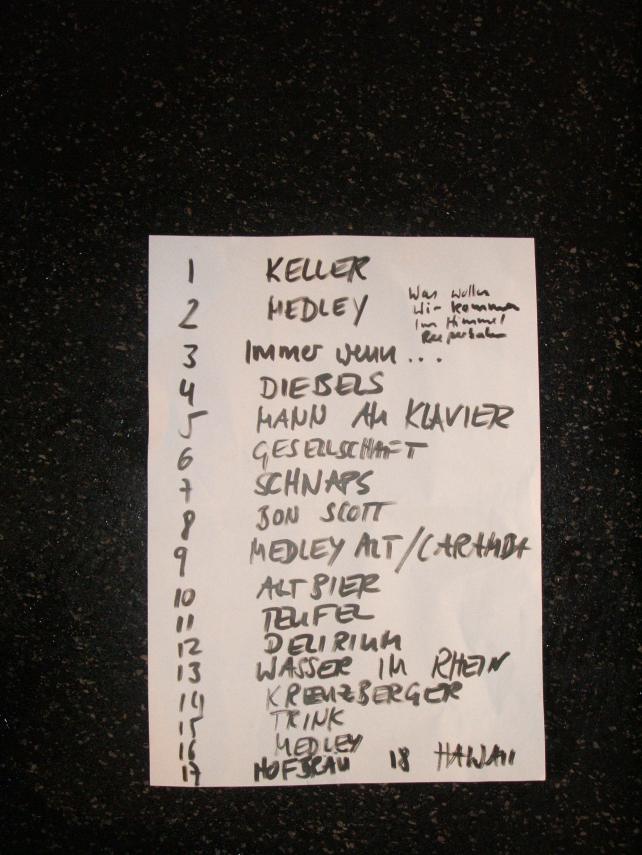 1 KELLER
2 MEDLEY
Was wollen
Wir kommen
Im Himmel
Reeperbahn
3 Immer wenn ...
4 DIEBELS
5 MANN AM KLAVIER
6 GESELLSCHAFT
7 SCHNAPS
8 BON SCOTT
9 MEDLEY ALT/CARAMBA
10 ALTBIER
11 TEUFEL
12 DELIRIUM
13 WASSER IM RHEIN
14 KREUZBERGER
15 TRINK
16 MEDLEY
17 HOFBRAU 18 HAWAII